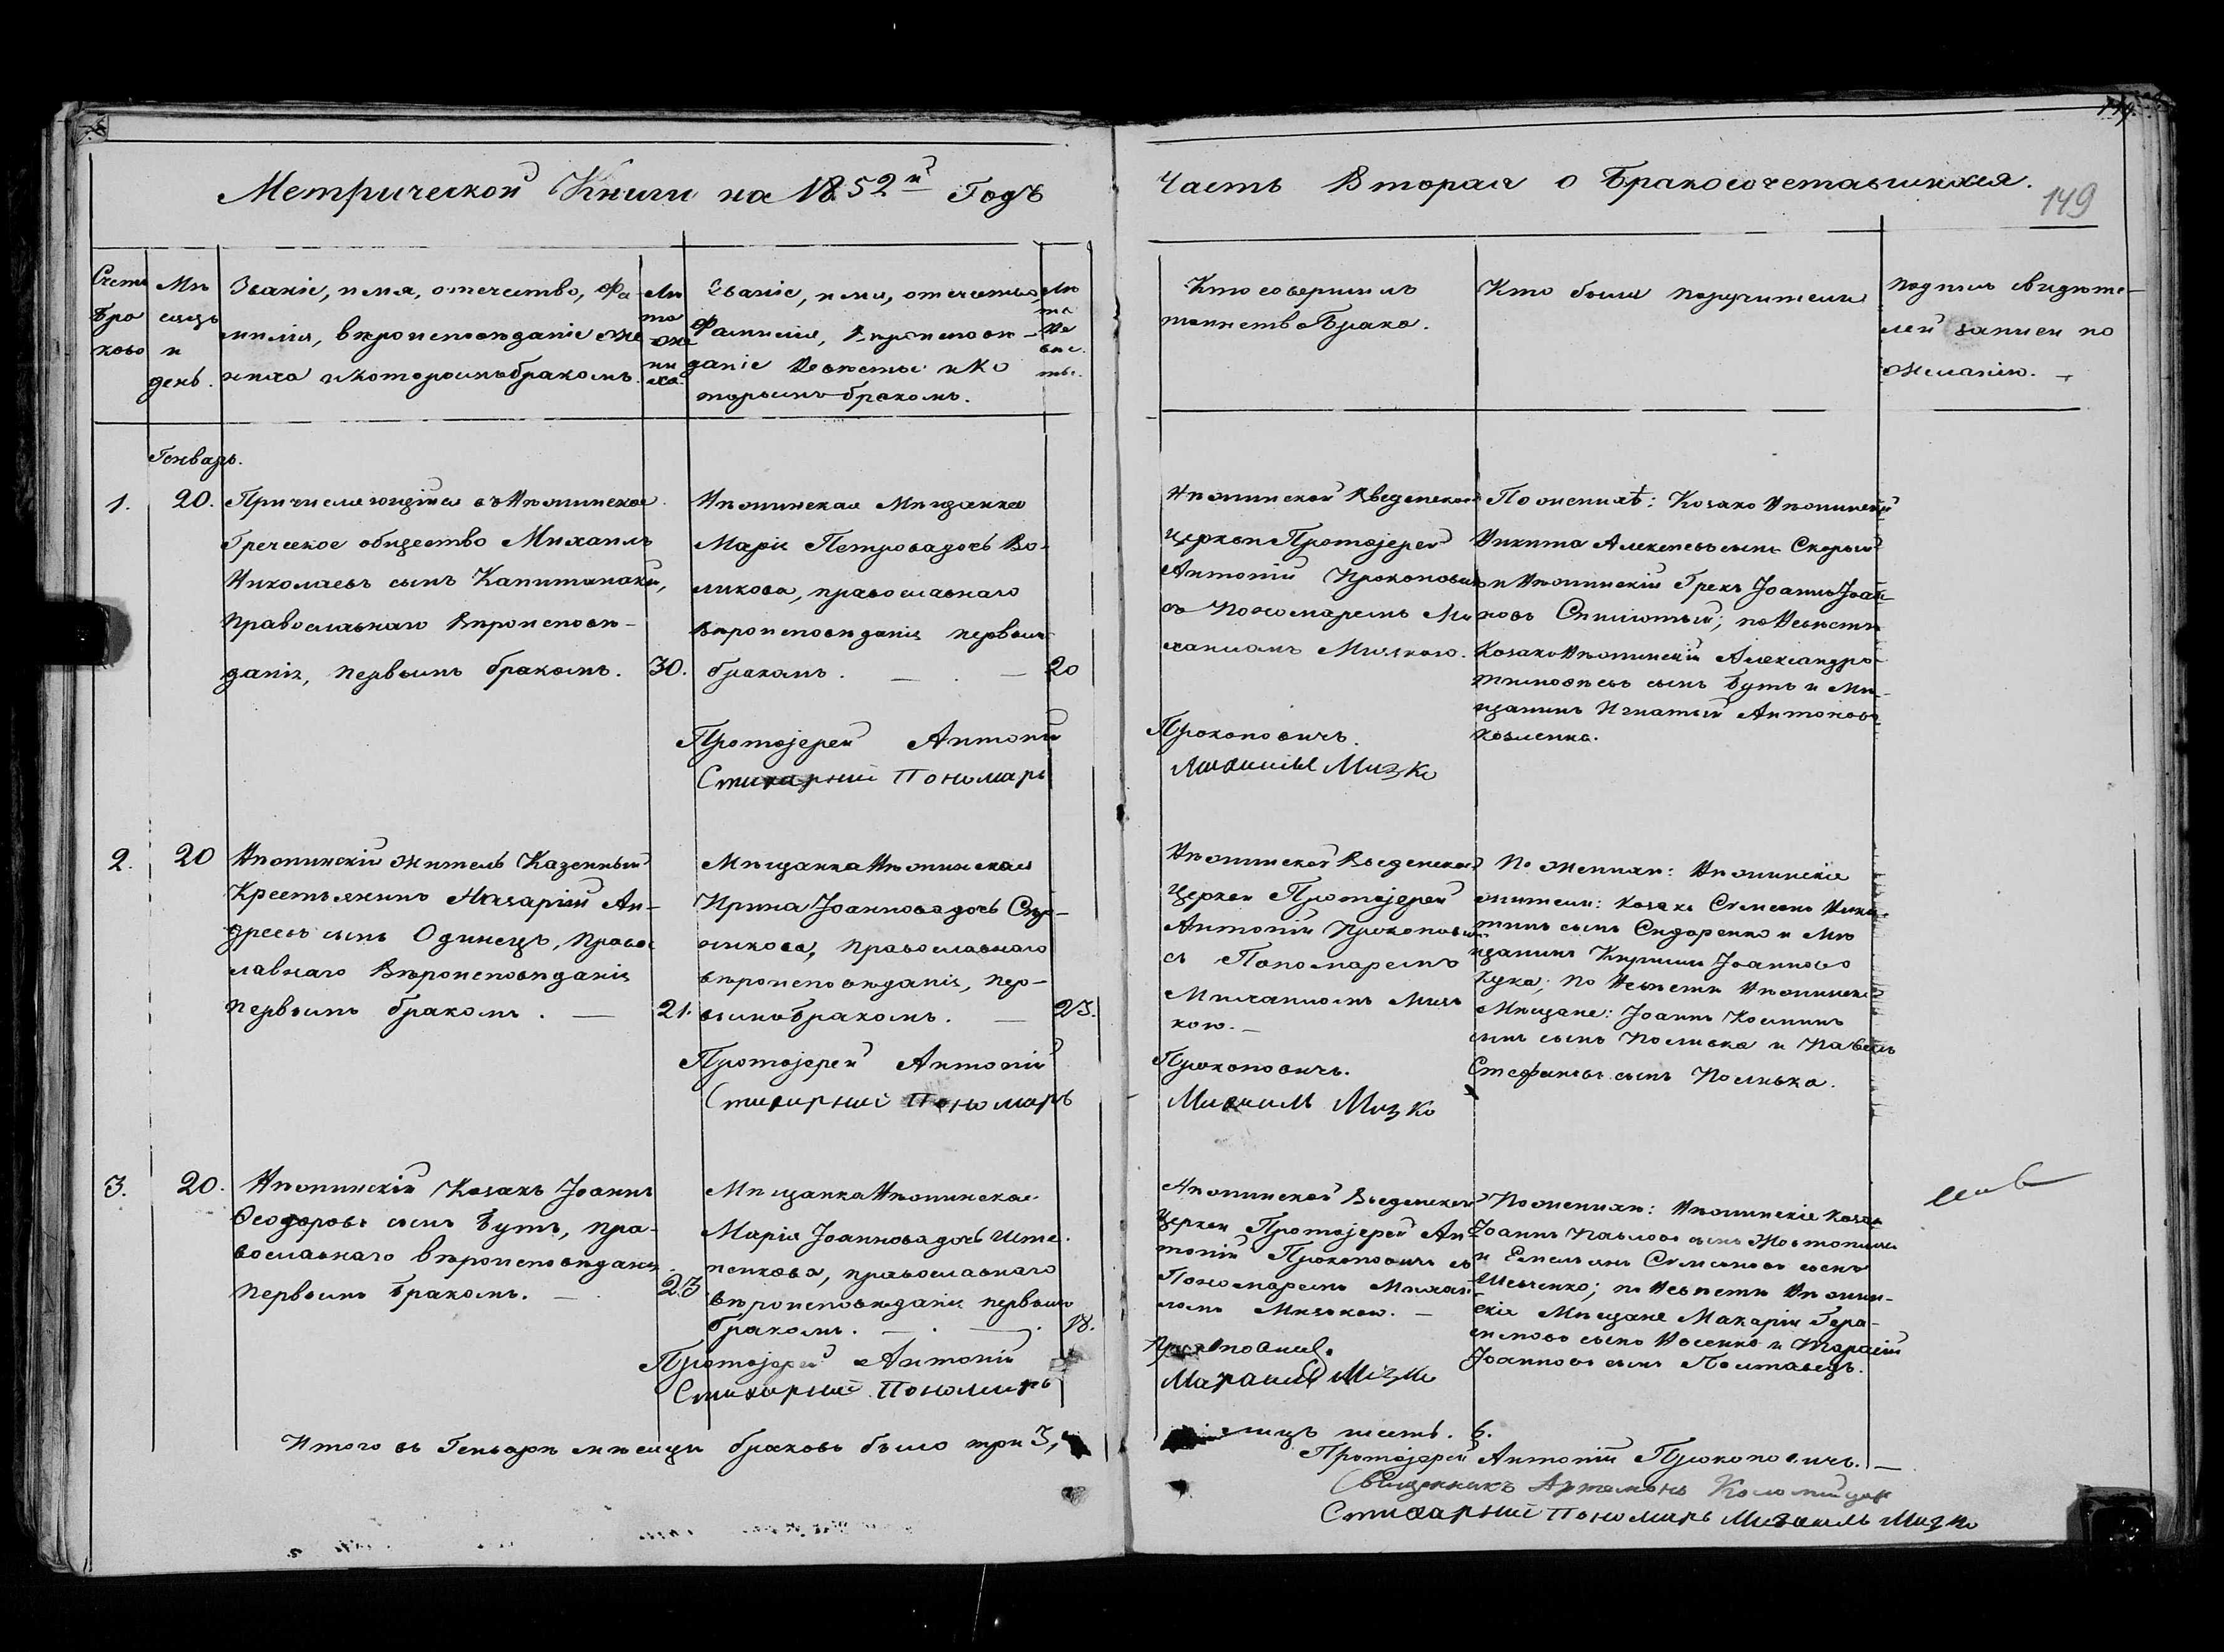 Метрической Книги на 1852й Годъ
Часть Вторая о Бракосочетавшихся.
149
Счетъ
бра
ковъ
Мѣ
сяцъ
и
день.
Званіе, имя, отчество, фа-
милія, вѣроисповѣданіе же
ниха и которымъ бракомъ.
Лѣ
та
же
ни
ха.
Званіе, имя, отчество,
Фамилія, Вѣроисповѣ-
даніе Невѣсты и Ко
торымъ бракомъ.
Лѣ
та
Не
вѣс.
ты.
Кто совершилъ
таинство Брака.
Кто были поручители
Подпись свидѣте-
лей записи по
желанію.
Генварь.
1.
20.
Причисляющійся въ Нѣжинское
Греческое общество Михаилъ
Николаевъ сынъ Капитанаки,
православнаго Вѣроисповѣ-
данія, первымъ бракомъ.
30.
Нѣжинская Мѣщанка
Марія Петрова дочь Во-
ликова, православнаго
Вѣроисповѣданія первымъ
бракомъ.
20
Протоіерей Антоній
Стихарный Пономарь
Нѣжинской Введенской
Церкви Протоіерей
Антоній Прокоповичь
съ Пономаремъ Ми
хаиломъ Мизкою.
Прокоповичъ.
Михаилъ Мизко
По женихѣ: Козакъ Нѣжинскій
Никита Алексеевъ сынъ Скорый
и Нѣжинскій Грекъ Іоаннъ Іоан-
новъ ; по Невѣстѣ
Козакъ Нѣжинскій Александръ
Тимофѣевъ сынъ Бутъ и Мѣ-
щанинъ Игнатій Антоновъ
Козленко.
2.
20
Нѣжинскій житель Казенный
Крестьянинъ Назарій Ан-
дреевъ сынъ Одинецъ, Право
славнаго Вѣроисповѣданія
первымъ бракомъ.
21.
Мѣщанка Нѣжинская
Ирина Іоаннова дочь
православнаго
вѣроисповѣданія, пер-
вымъ бракомъ.
23.
Протоіерей Антоній
Стихарный Пономарь
Нѣжинской Введенской
Церкви Протоіерей
Антоній Прокоповичь
съ Пономаремъ
Михаиломъ Миз
кою.
Прокоповичъ.
Михаилъ Мизко
По женихѣ: Нѣжинскіе
жители: Козакъ Симеонъ Ники
тинъ сынъ Сидоренко и Мѣ
щанинъ Іоанновъ
Кука; по Невѣстѣ Нѣжинскіе
Мѣщане: Іоаннъ Косминъ
сынъ и Павелъ
Стефановъ сынъ
3.
20.
Нѣжинскій Козакъ Іоаннъ
Ѳеодоровъ сынъ Бутъ, пра-
вославнаго вѣроисповѣданія
первымъ бракомъ.
23
Мѣщанка Нѣжинская
Марія Іоаннова дочь
православнаго
вѣроисповѣданія первымъ
бракомъ.
18.
Протоіерей Антоній
Стихарный Пономарь
Нѣжинской Введенской
Церкви Протоіерей Ан
тоній Прокоповичь съ
Пономаремъ Михаи
ломъ Мизкою.
Прокоповичъ.
Михаилъ Мизко
По женихѣ: Нѣжинскіе Козаки
Іоаннъ Павловъ сынъ
и Емельянъ Симеоновъ сынъ
Шевченко; по Невѣстѣ Нѣжин-
скіе Мѣщане Макарій Гера-
симовъ сынъ Носенко и Тарасій
Іоанновъ сынъ Полтавецъ.
Итого въ Генварѣ мѣсяцѣ браковъ было три 3,
лицъ шесть. 6.
Протоіерей Антоній Прокоповичъ.
Священникъ Артемонъ Коломійцовъ
Стихарный Пономарь Михаилъ Мизко